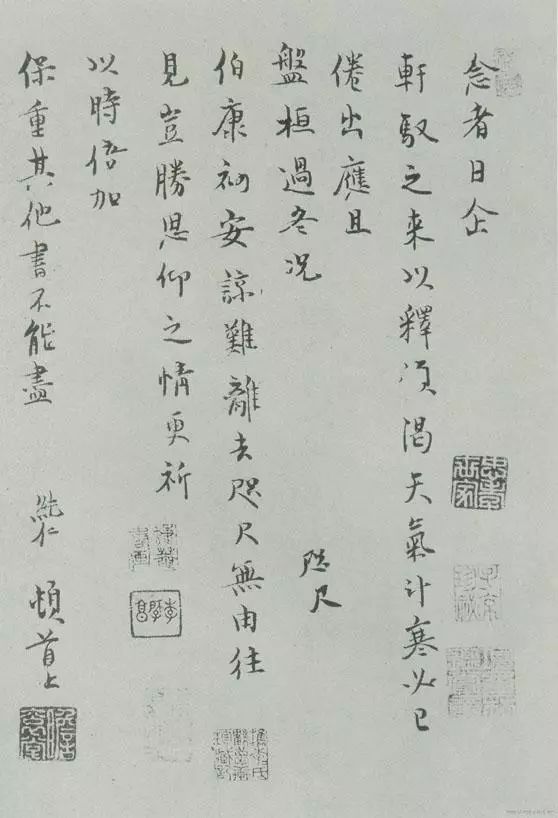 念者日企
軒馭之来以釋傾渴天氣計寒必已
倦出應且
盤桓過冬況
咫尺
伯康初安諒難離去咫尺無由往
見豈勝思仰之情更祈
以時倍加
保重其他書不能盡 純仁 頓首上